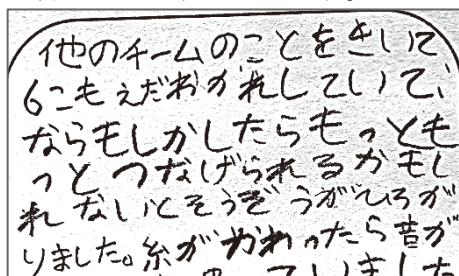 他のチームのことをきいて
6こもえだわかれしていて、
ならもしかしたらもっとも
っとつなげられるかもし
れないとそうぞうがひろが
りました。糸がかわったら音が
ていました